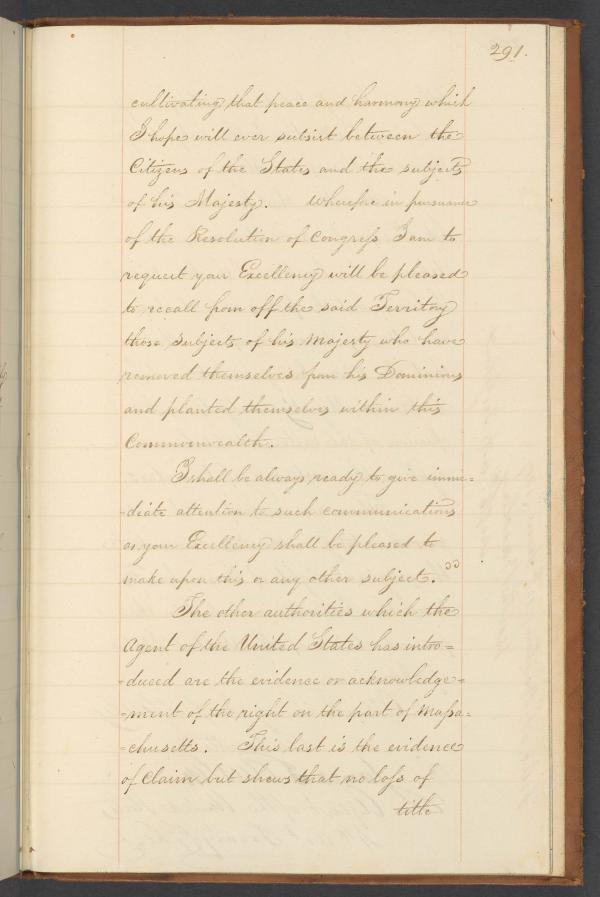 291.
cultivating that peace and harmony which
I hope will ever subsist between the
Citizens of the States and the subjects
of his Majesty. Wherefore in pursuance
of the Resolution of Congress I am to
request your Excellency will be pleased
to recall from off the said Territory
those subjects of his Majesty who have
removed themselves from his Dominions
and planted themselves within this
Commonwealth.
I shall be always ready to give imme=
=diate attention to such communications
as your Excellency shall be pleased to
make upon this or any other subject. "
The other authorities which the
Agent of the United States has intro=
=duced are the evidence or acknowledge=
=ment of the right on the part of Massa=
=chusetts. This last is the evidence
of Claim but shews that no loss of
title